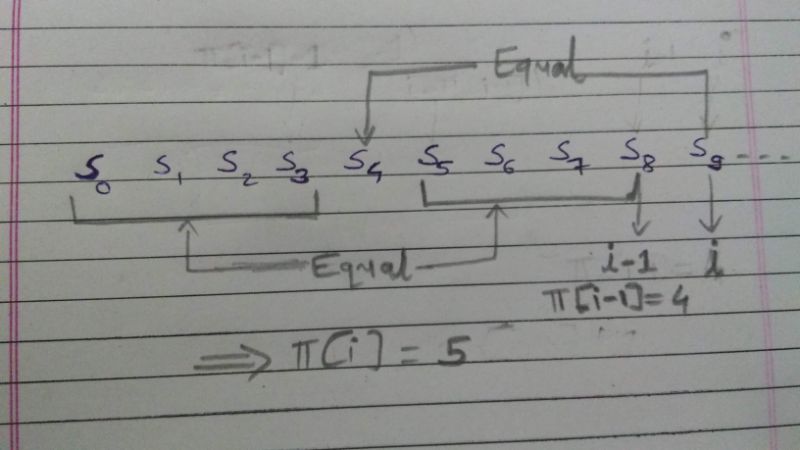 Equal
S₀ S₁ S₂ S₃ S₄ S₅ S₆ S₇ S₈ S₉ ---
Equal
i-1 i
π[i-1]=4
⟹ π[i] = 5